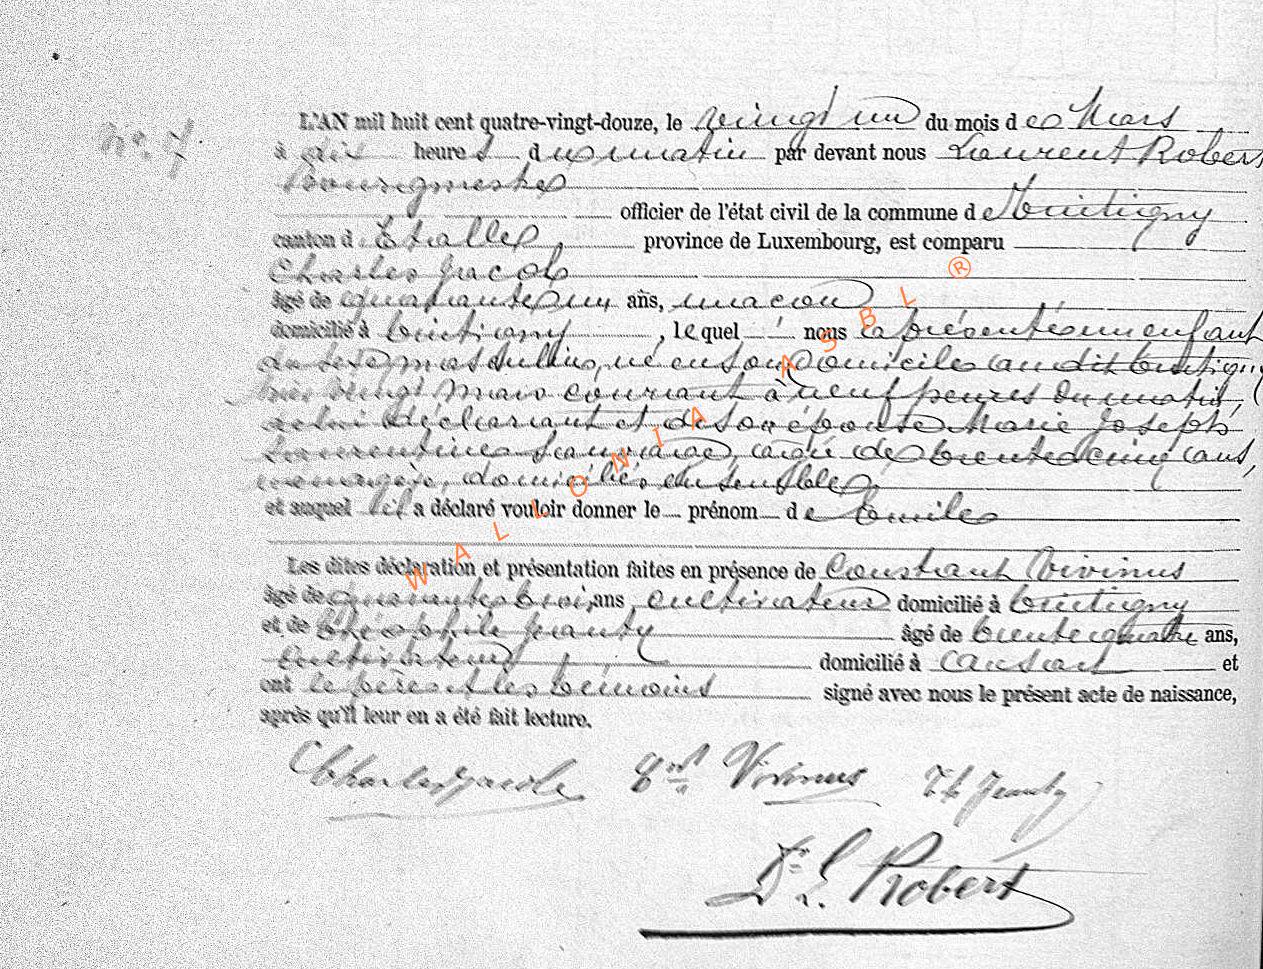 No. 7.
L'AN mil huit cent quatre-vingt-douze, le vingt un du mois de Mars
à dix heures du matin par devant nous Laurent Robert
Bourgmestre
officier de l'état civil de la commune de Tintigny
canton d'Etalle, province de Luxembourg, est comparu
Charles Jacob
âgé de quarante un ans, maçon
domicilié à Tintigny, lequel nous a présenté un enfant
du sexe masculin, né en son domicile au dit Tintigny
vingt Mars courant à neuf heures du matin,
de lui déclarant et de son épouse Marie Joseph
Laurentine âgée de trente cinq ans,
ménagère, domiciliés ensemble
et auquel il a déclaré vouloir donner le prénom de Emile
Les dites déclaration et présentation faites en présence de Constant Vivinus
âgé de quarante trois ans, cultivateur domicilié à Tintigny
et de Théophile Jeanty âgé de trente quatre ans,
cultivateur domicilié à Ansart et
ont le père et les témoins signé avec nous le présent acte de naissance,
après qu'il leur en a été fait lecture.
Charles Jacob Cnst Vivinus Th Jeanty
Dr L. Robert
WALLONIA ASBL ®